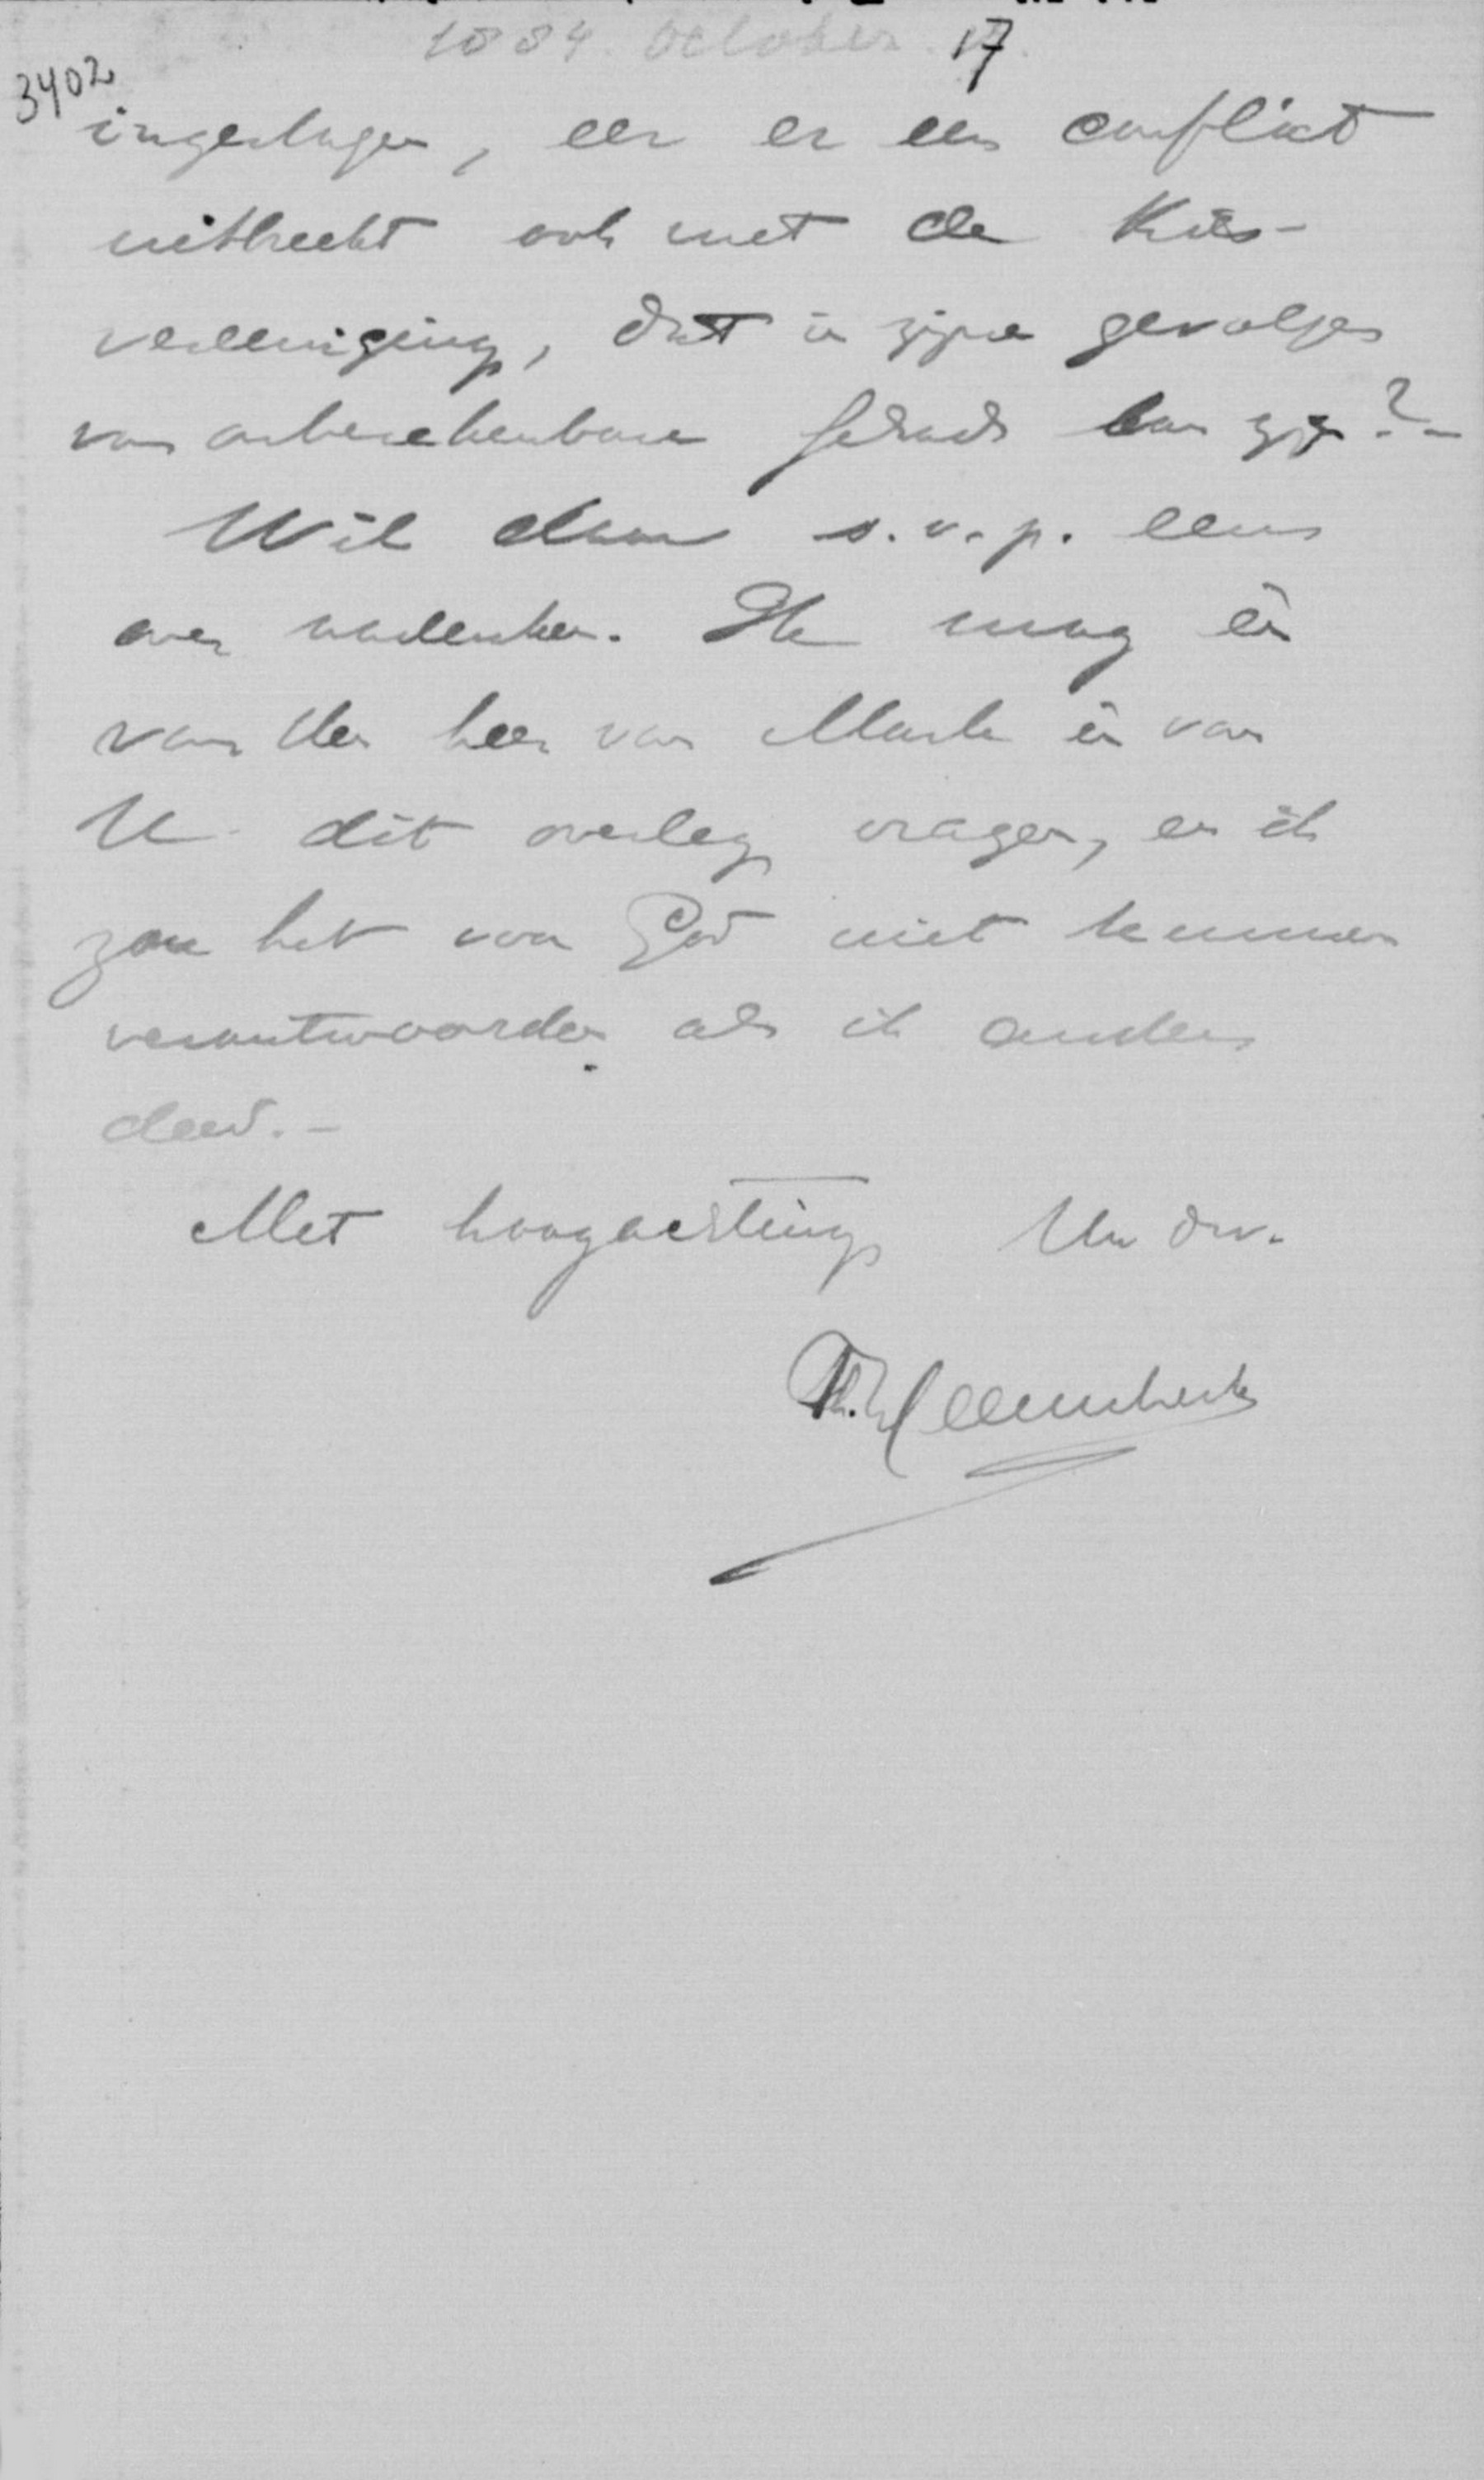 1884 October 17
3402
ingeslagen, eer er een conflict
uitbreekt ook met de Kies-
vereeniging, dat in zijne gevolgen
van onberekenbare schade kan zijn?-
Wil daar s.v.p. eens
over nadenken. Ik mag èn
van den heer van Marle èn van
U dit overleg vragen, en ik
zou het voor God niet kunnen
verantwoorden als ik anders
deed.-
Met hoogachting Uw dw.
Th. Heemskerk